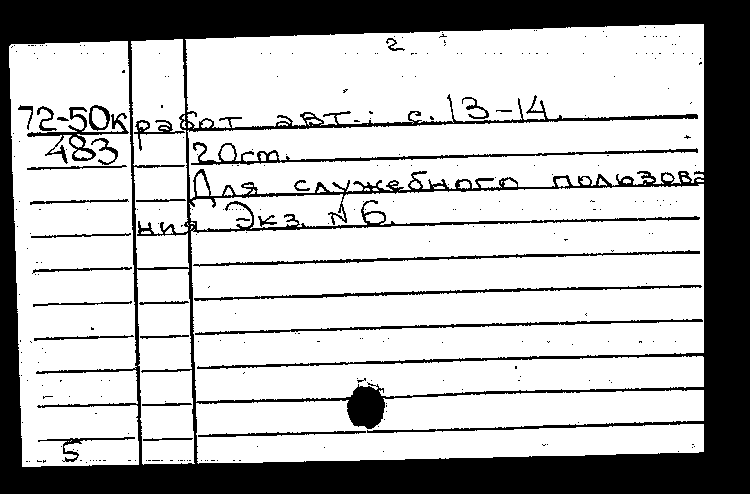 2
72-50к работ авт.: с. 13-14.
483 20см.
Для служебного пользова
ния Экз. № 6.
5